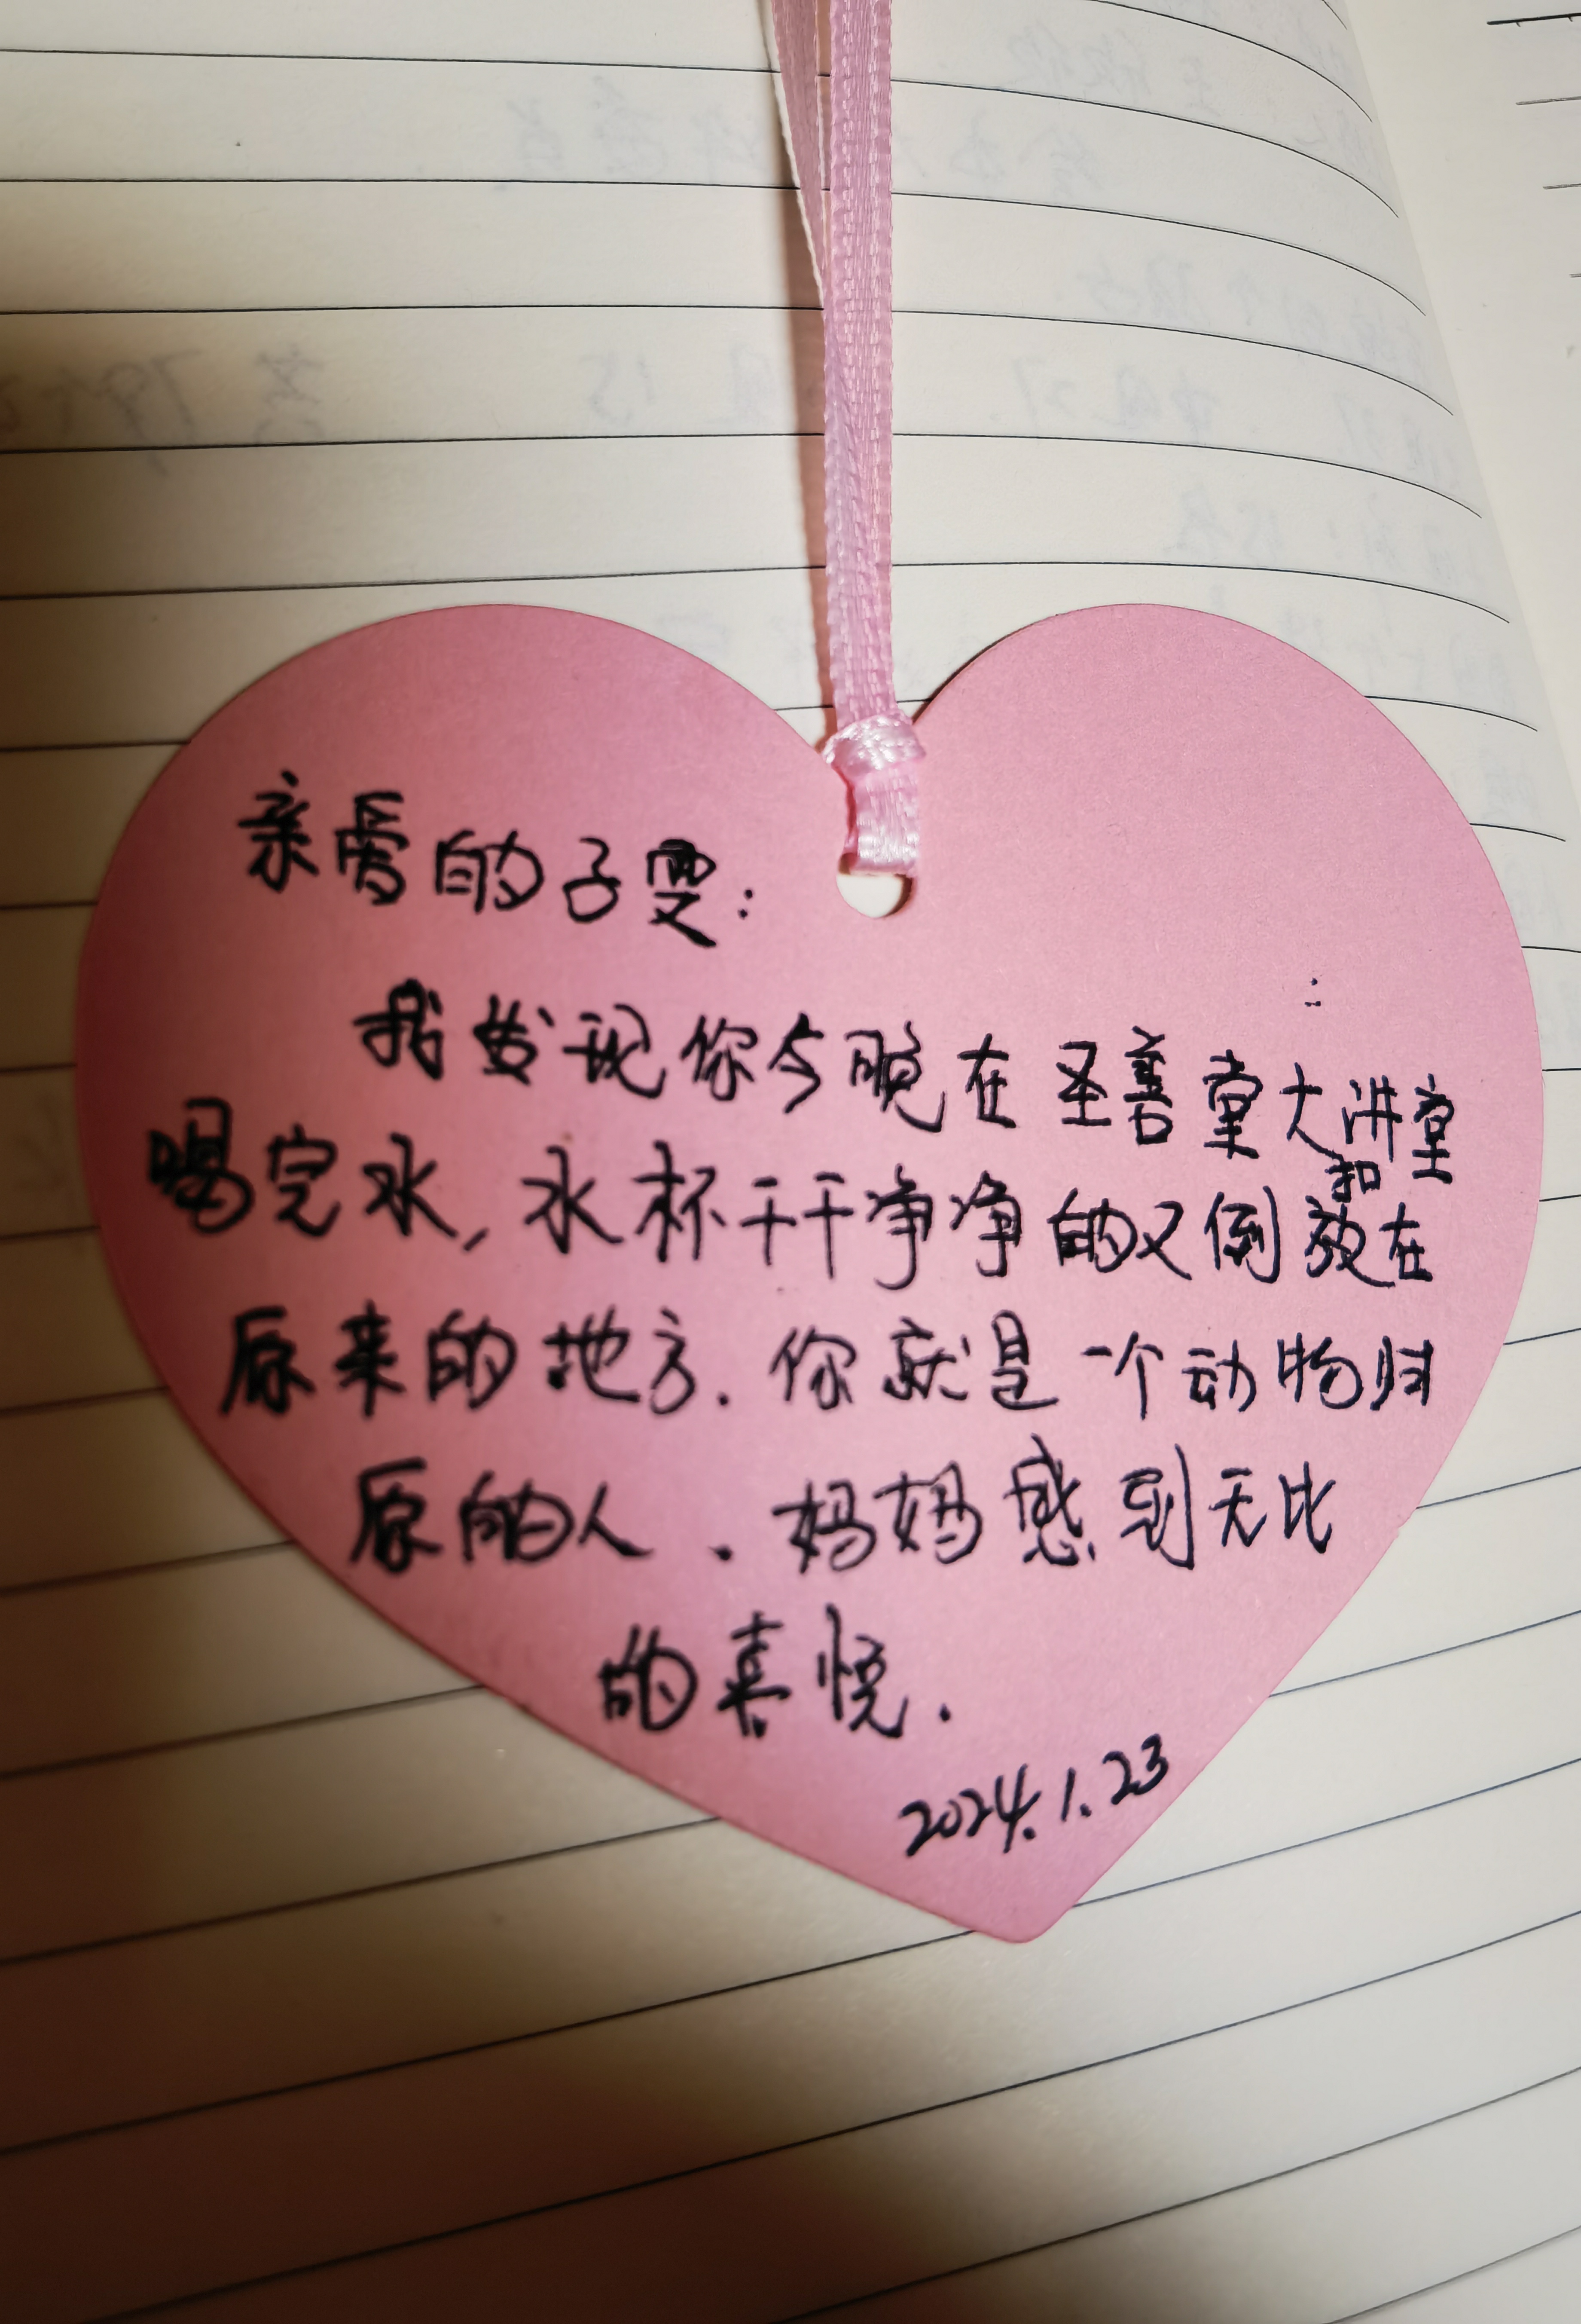 亲爱的子雯：
我发现你今晚在圣善堂大讲堂
喝完水，水杯干干净净的又倒扣放在
原来的地方.你就是一个动物归
原的人.妈妈感到无比
的喜悦.
2024.1.23